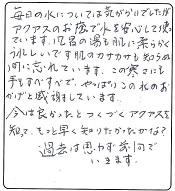 毎日の水については気がかりでしたが
アクアスのお蔭で水を安心して使
ています。風呂の湯も肌に柔らかく
うれしいです肌のカサカサも知らぬ
間に忘れています。この寒さにも
手もすべすべで、やっぱりこの水のお
かげと感謝しています。
今は良かったとつくづくアクアスを
知って、もっと早く知りたかったかな?
過去は思わず前向で
いきます。